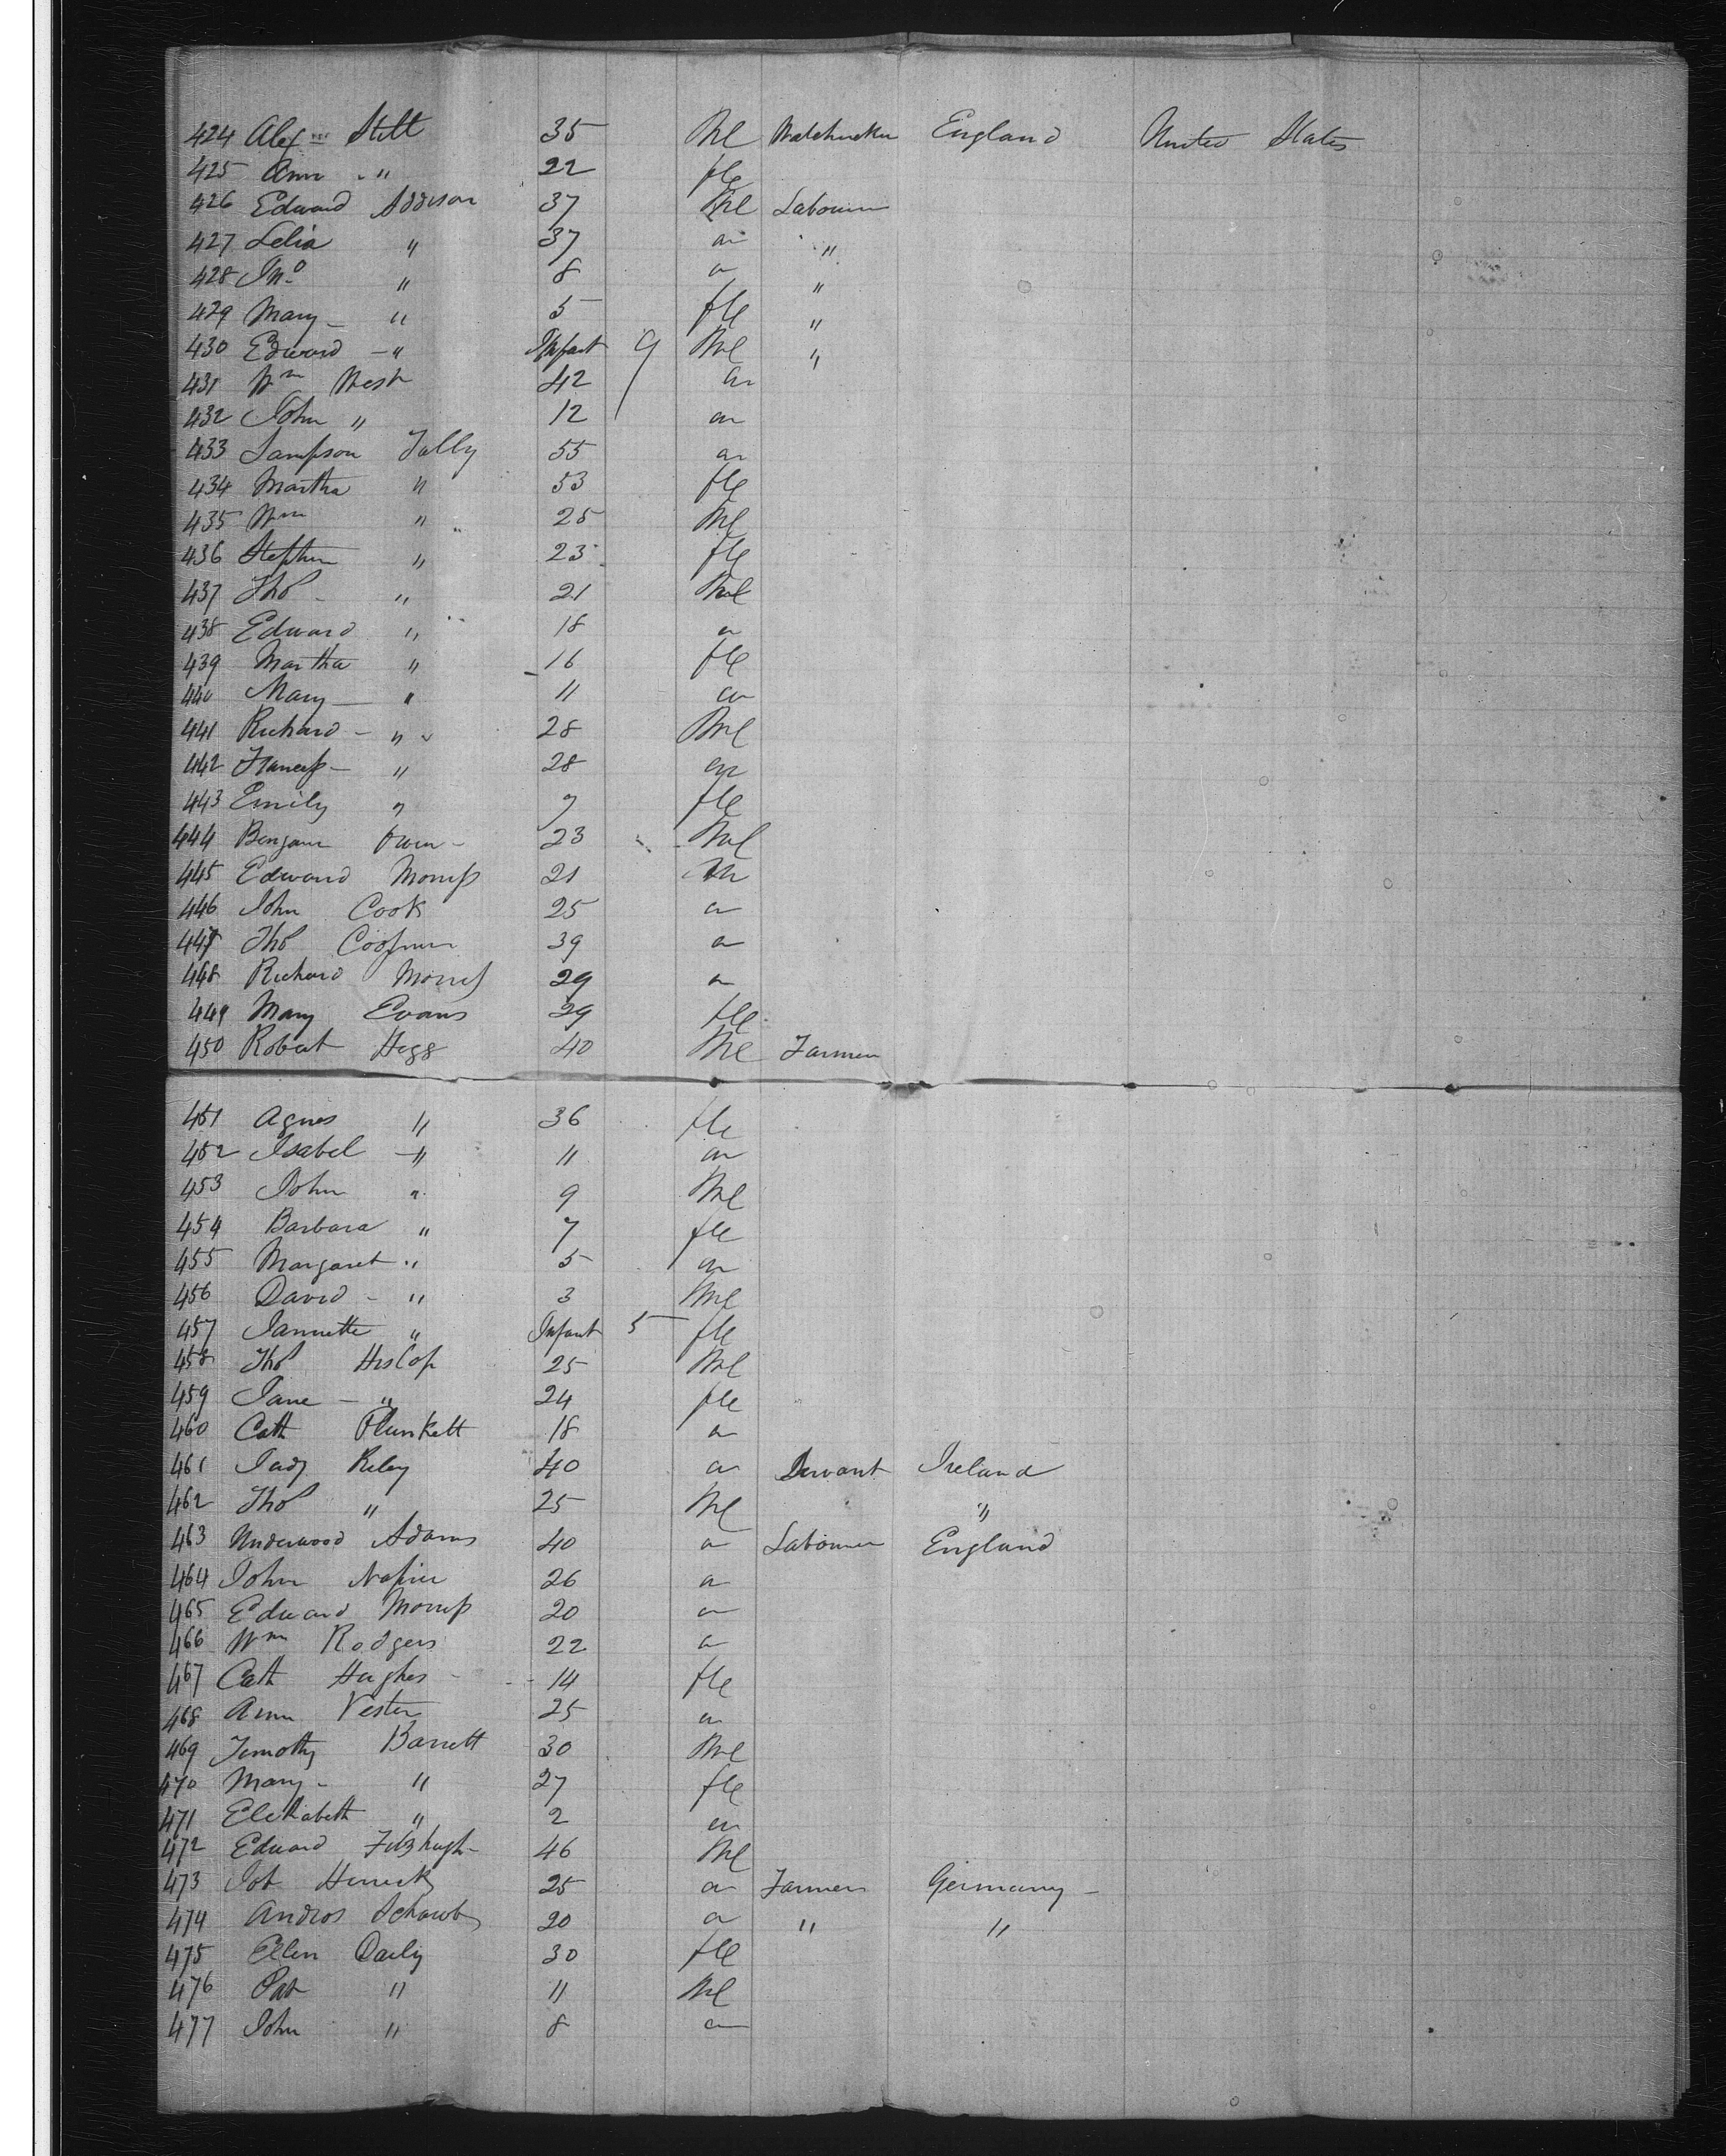 424 Alexr Stilt 35 Ml Watchmaker England United States
425 Ann " 22 fle
426 Edward Addison 37 Ml Labourer
427 Lelia " 37 "
428 Jno " 8 "
429 Mary " 5 fle "
430 Edward " Infant 9 Ml "
431 Wm West 42
432 John " 12
433 Sampson Tally 55
434 Martha " 53 fle
435 Wm " 25 Ml
436 Stephen " 23 fle
437 Thos " 21 Ml
438 Edward " 18
439 Martha " 16 fle
440 Mary " 11
441 Richard " 28 Ml
442 Francis " 28
443 Emily " 7 fle
444 Benjamin Owen 23 Ml
445 Edward Morris 21
446 John Cook 25
447 Thos 39
448 Richard Morris 29
449 Mary Evans 29 fle
450 Robert Hogg 40 Ml Farmer
451 Agnes " 36 fle
452 Isabel " 11
453 John " 9 Ml
454 Barbara " 7 fle
455 Margaret " 5
456 David " 3 Ml
457 Jannette " Infant 5 fle
458 Thos Hislop 25 Ml
459 Jane " 24 fle
460 Cath Plunkett 18
461 Judy Riley 40 Servant Ireland
462 Thos " 25 Ml "
463 Underwood Adams 40 Labourer England
464 John Napier 26
465 Edward Morris 20
466 Wm Rodgers 22
467 Cath Hughes 14 fle
468 Ann Vester 25
469 Timothy Barrett 30 Ml
470 Mary " 27 fle
471 Elizabeth " 2
472 Edward Fitzhugh 46 Ml
473 Job 25 Farmer Germany
474 Andros Schawb 20 " "
475 Ellen Daily 30 fle
476 Pat " 11 Ml
477 John " 8